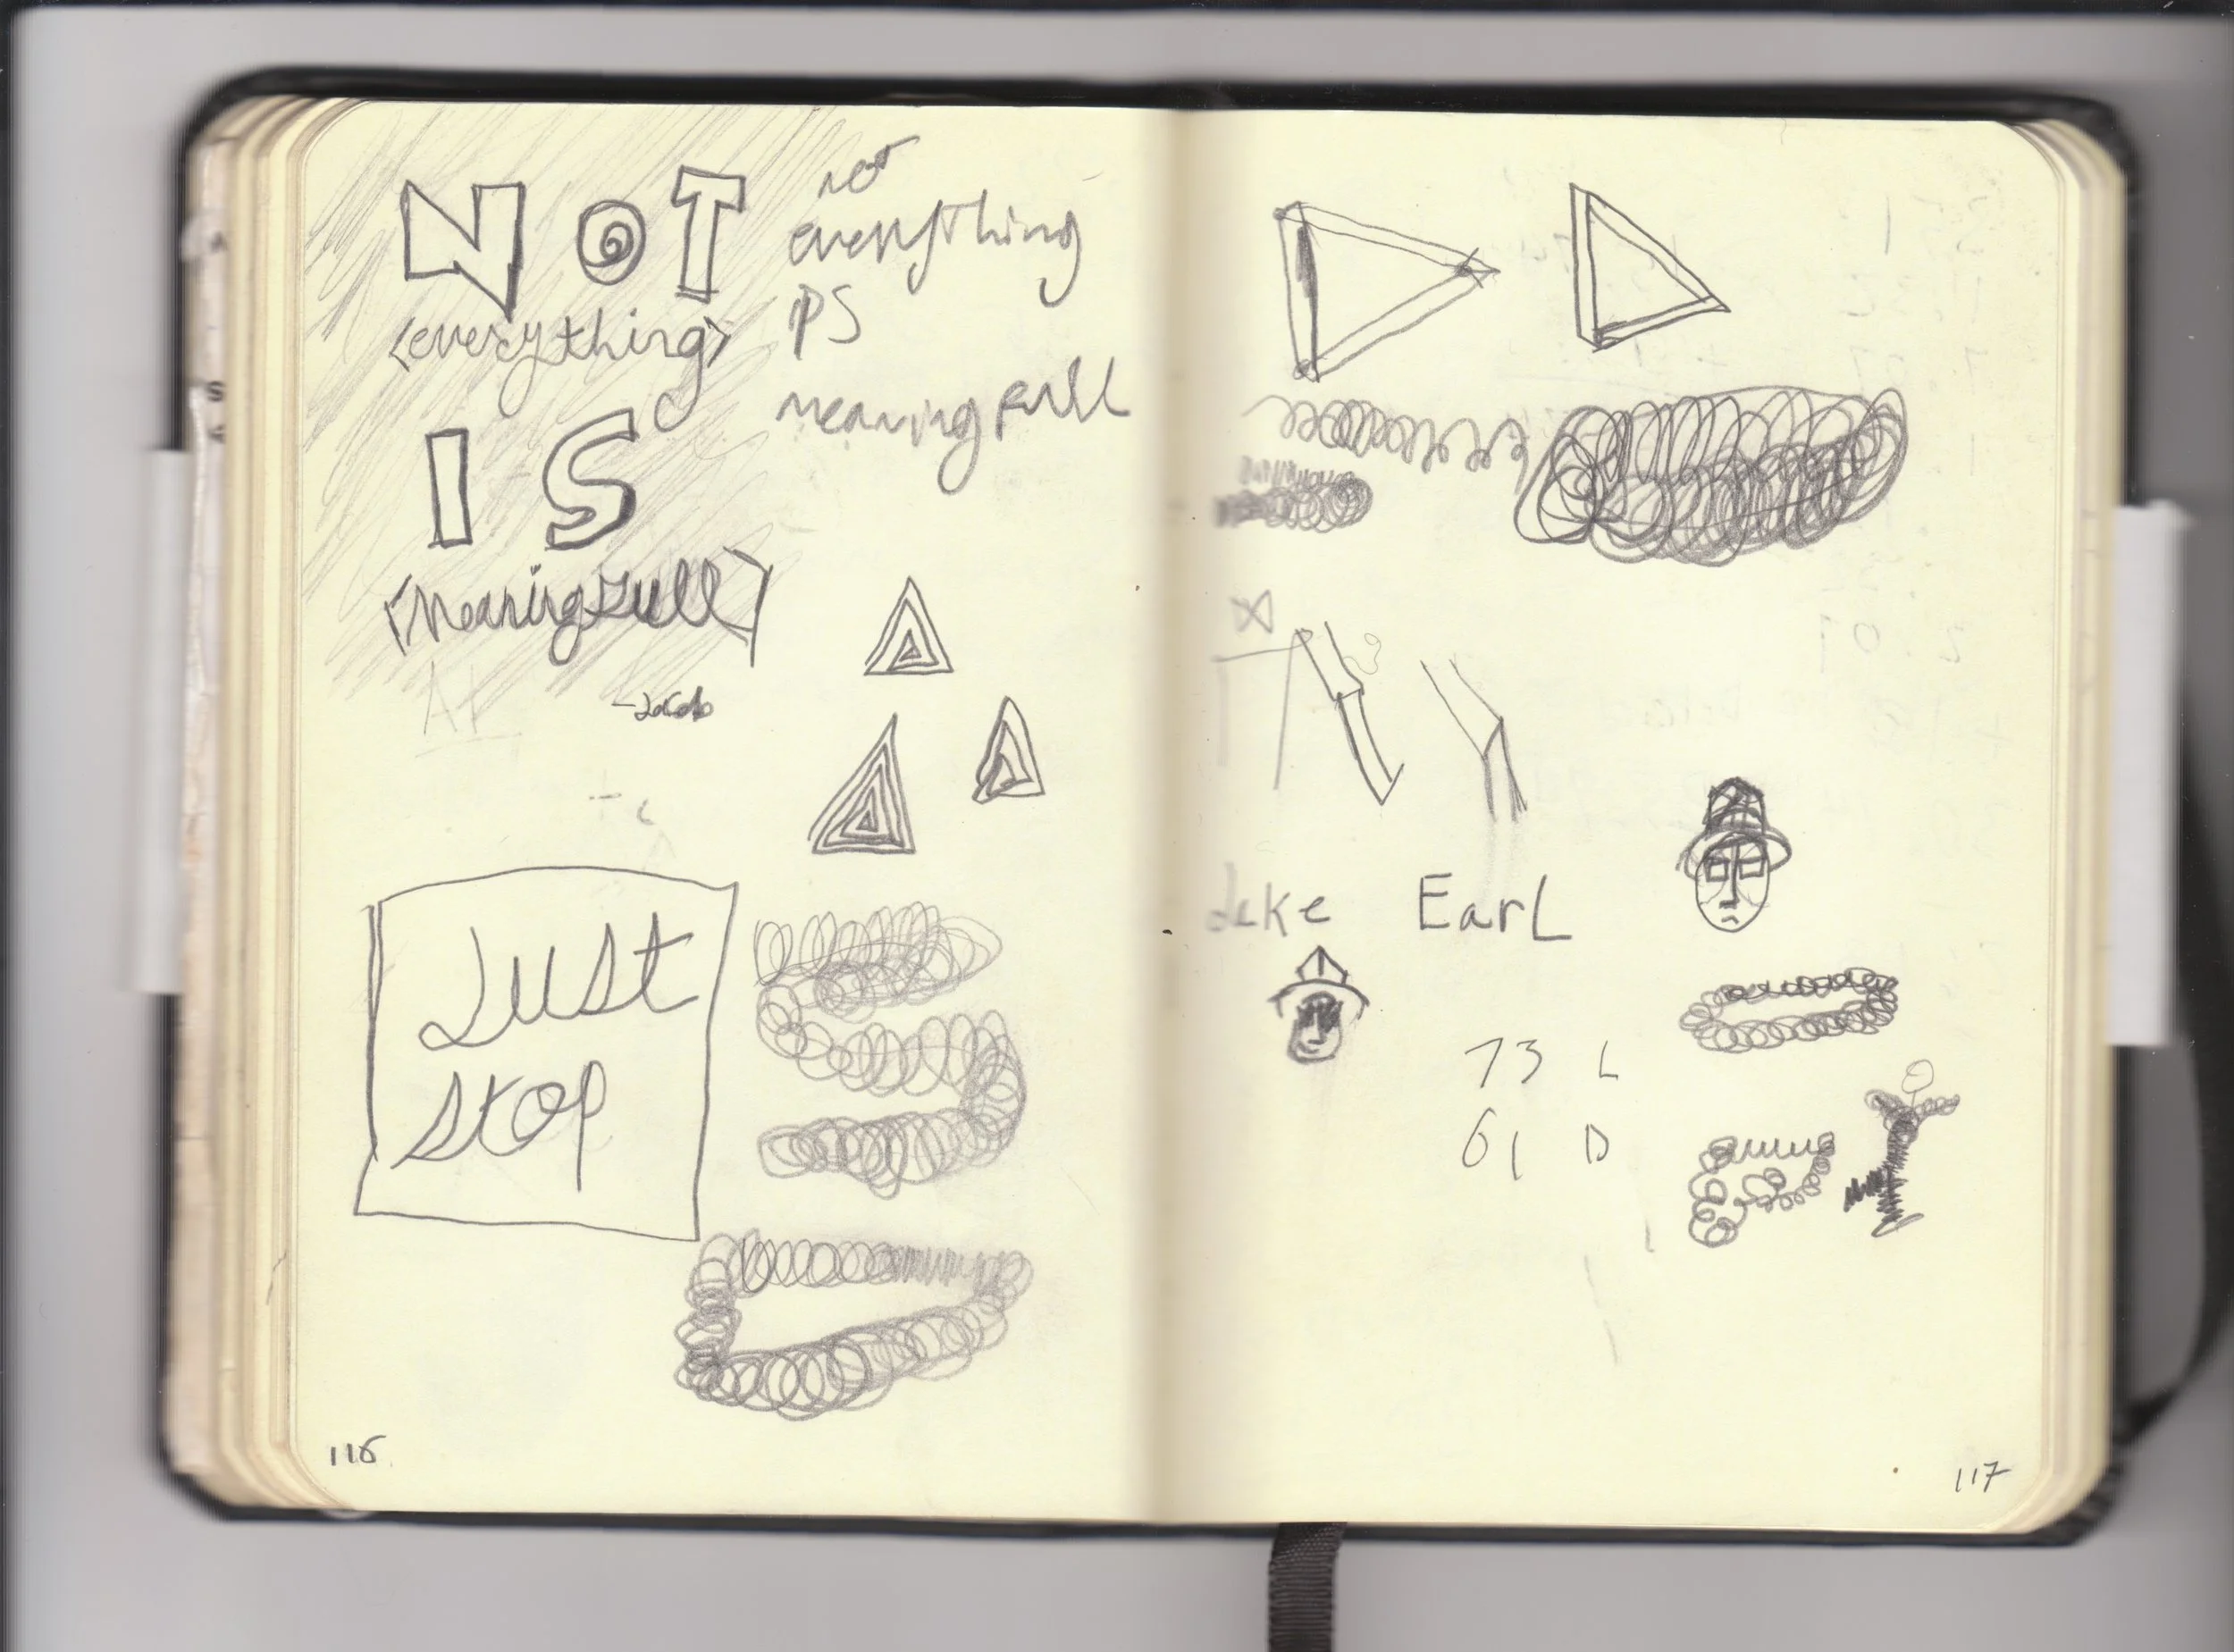 NOT
<everything>
IS
<Meaningfull>
-Jacob
not
everything
is
meaningfull
Just
stop
116
Jake EarL
73 L
61 D
117